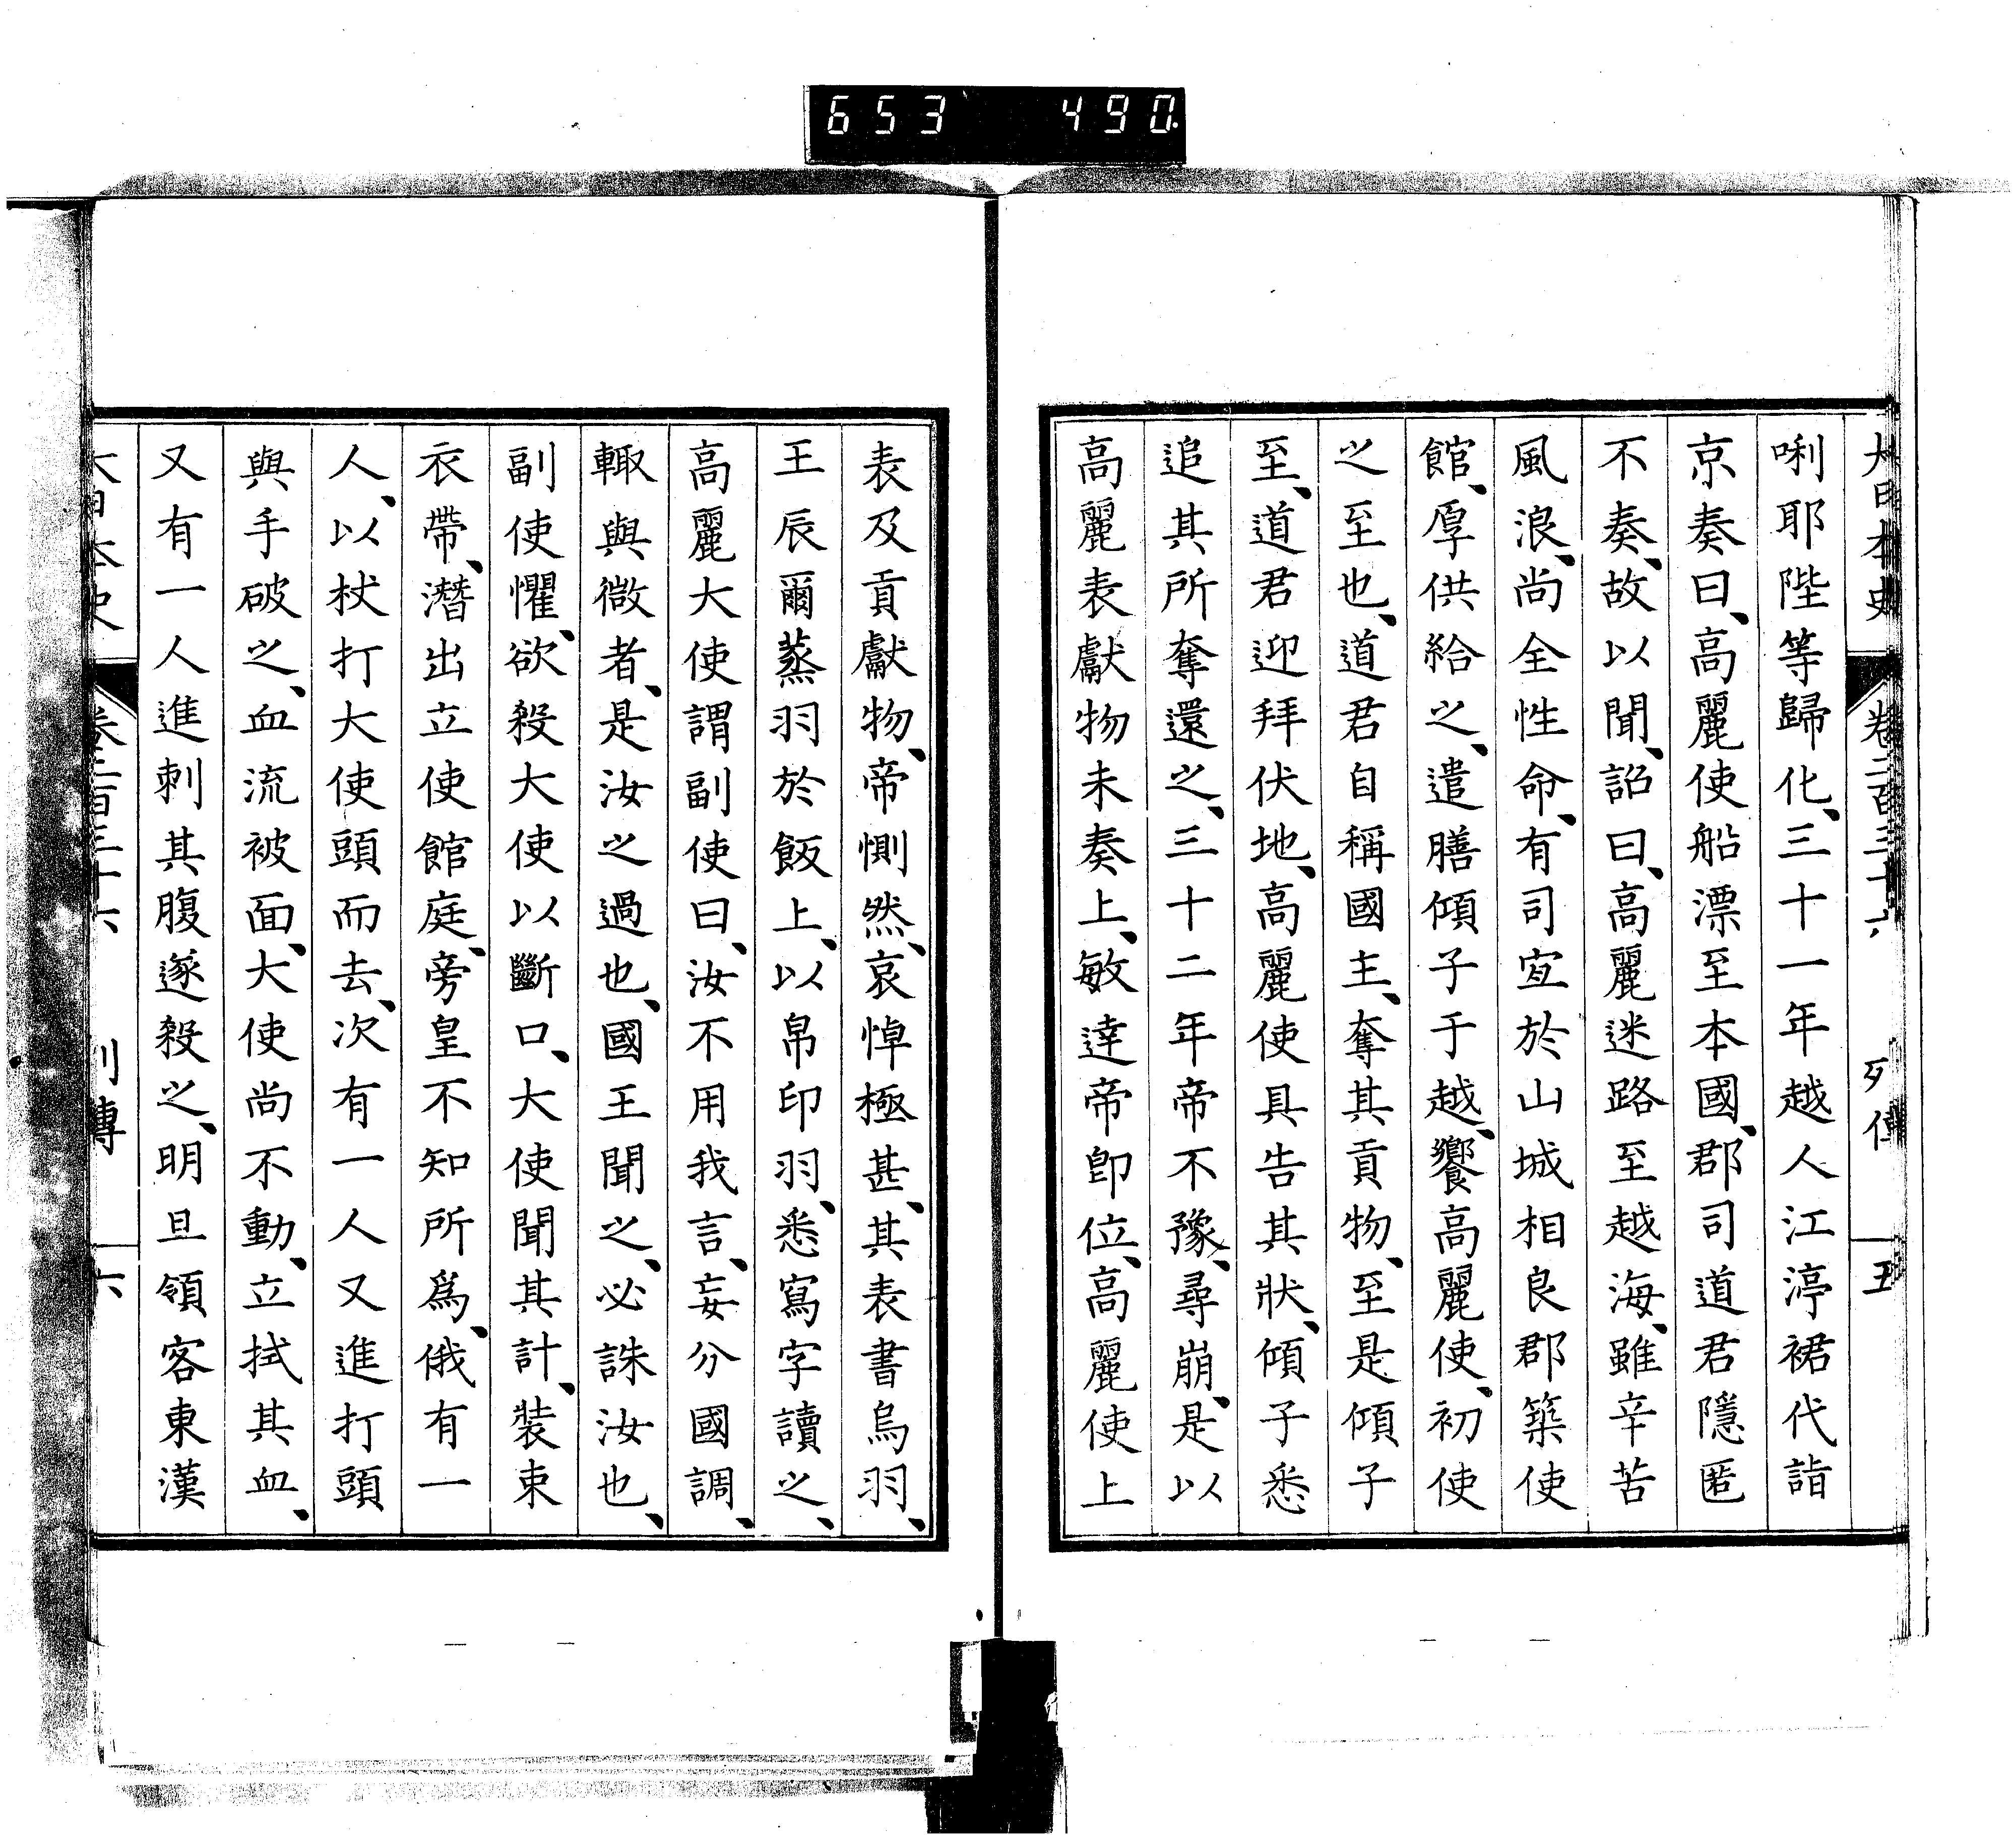 653 490
大日本史 卷二百三十六 列傳 五
唎耶陛等歸化、三十一年越人江渟裙代詣
京奏曰、高麗使船漂至本國、郡司道君隱匿
不奏、故以聞、詔曰、高麗迷路至越海、雖辛苦
風浪、尚全性命、有司宜於山城相良郡築使
館、厚供給之、遣膳傾子于越、饗高麗使、初使
之至也、道君自稱國主、奪其貢物、至是傾子
至、道君迎拜伏地、高麗使具告其狀、傾子悉
追其所奪還之、三十二年帝不豫、尋崩、是以
高麗表獻物未奏上、敏達帝卽位、高麗使上
表及貢獻物、帝惻然、哀悼極甚、其表書烏羽、
王辰爾蒸羽於飯上、以帛印羽、悉寫字讀之、
高麗大使謂副使曰、汝不用我言、妄分國調、
輙與微者、是汝之過也、國王聞之、必誅汝也、
副使懼、欲殺大使以斷口、大使聞其計、裝束
衣帶、潛出立使館庭、旁皇不知所爲、俄有一
人、以杖打大使頭而去、次有一人又進打頭
與手破之、血流被面、大使尚不動、立拭其血、
又有一人進刺其腹遂殺之、明旦領客東漢
大日本史 卷二百三十六 列傳 六